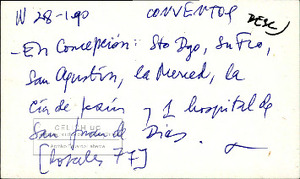 W 28-1.90 CONVENTOS DESC
- En Concepción: Sto Dgo, Sn Fco,
San Agustín, la Merced, la
Cía de Jesús y 1 hospital de
San Juan de Dios.
[Rosales 77]